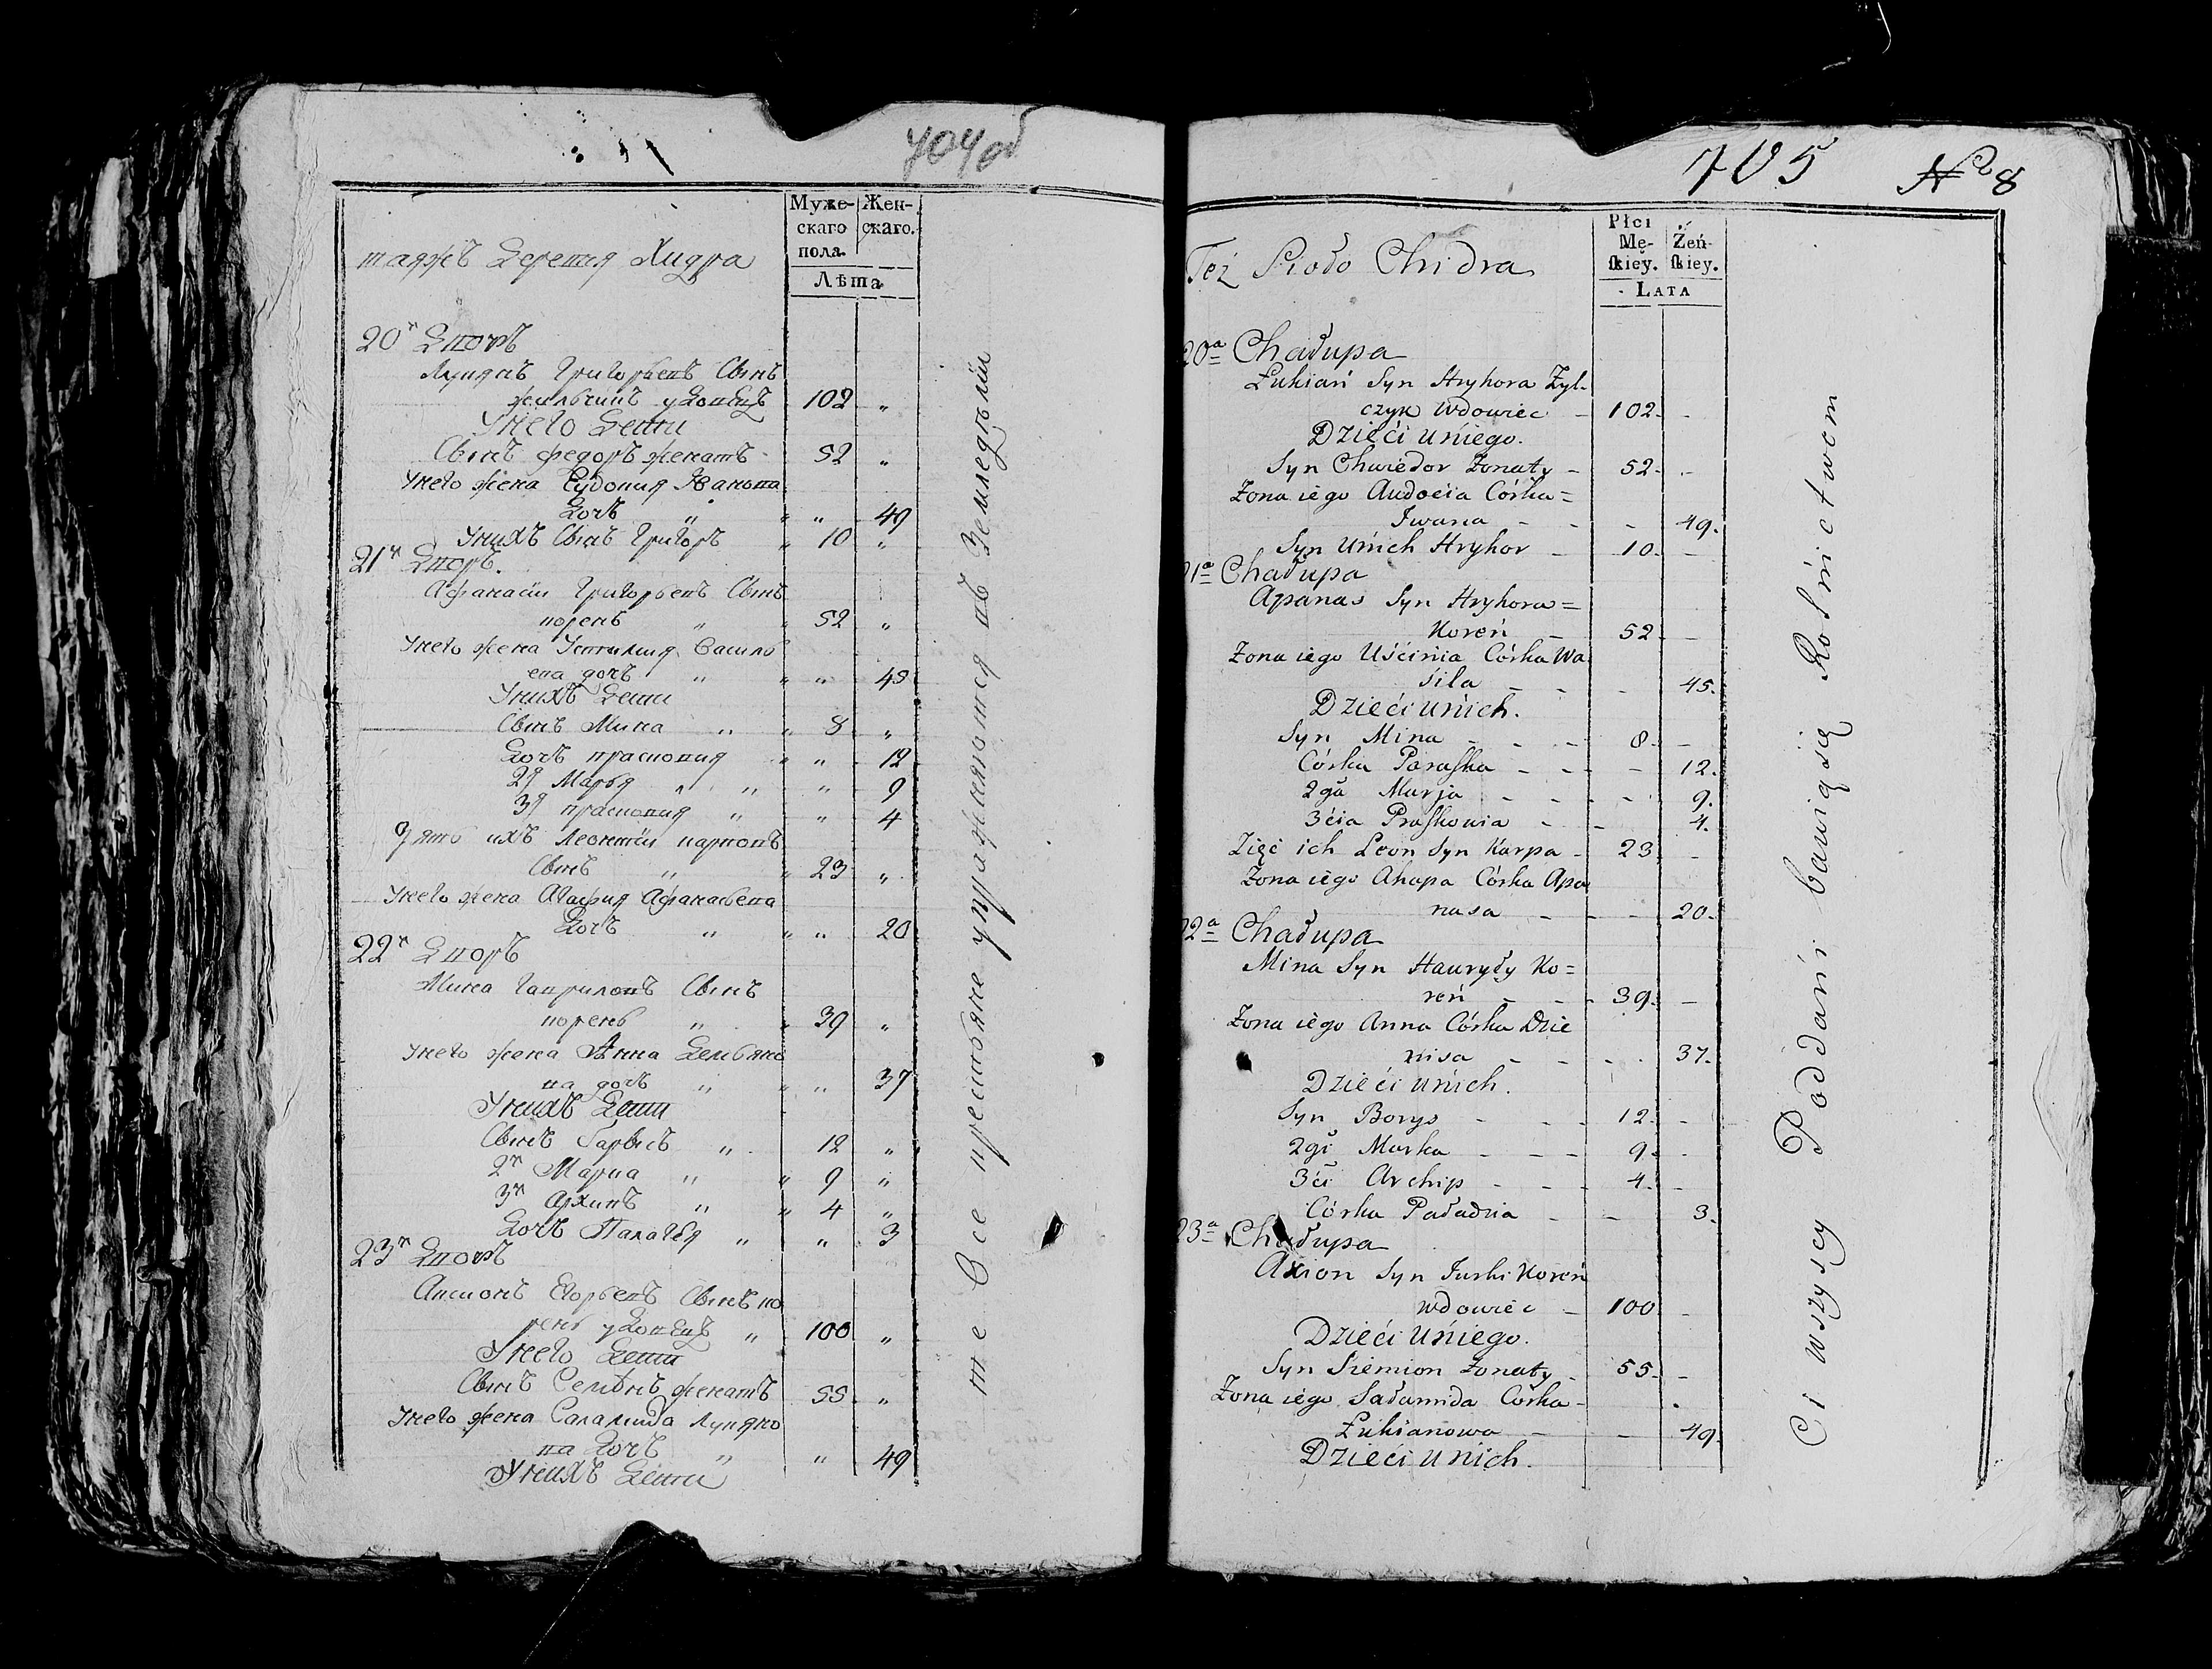 704 об
Муже-
скаго
пола.
Жен-
скаго.
Лѣта
таяжъ Деревня Хидра
20й Дворъ
Лукянъ Григорьевъ Сынъ
жильчикъ удовецъ 102 „
У него Дети
Сынъ федоръ женатъ 52 „
У него жена Еудокия Иванова
Дочъ „ „ „ 49
У нихъ Сынъ Григоръ „ 10 „
21й Дворъ.
Афанасiй Григорьевъ Сынъ
корень „ „ 52 „
У него жена Устиния Василь
ева дочъ „ „ „ 45
У нихъ Дети
Сынъ Мина „ „ 8 „
Дочъ прасковия „ „ 12
2я Марья „ „ „ 9
3я прасковия „ „ 4
Зять ихъ Леонтiй карповъ
Сынъ „ „ 23 „
У него жена Агафия Афанасьева
Дочъ „ „ „ 20
22й Дворъ
Мина Гавриловъ Сынъ
корень „ „ 39 „
У него жена Анна Демьяно
ва дочъ „ „ „ 37
У нихъ Дети
Сынъ Барысъ „ 12 „
2й Марка „ „ 9 „
3й Архипъ „ „ 4 „
Дочъ Палагея „ „ 3
23й Дворъ
Аксионъ Егорьевъ Сынъ ко
рень удовецъ „ 100 „
У него Дети
Сынъ Семѣнъ женатъ 55 „
У него жена Саламида Лукяно
ва Дочъ „ „ 49
У нихъ Дети
те Все крестьяне упражняются въ Земледѣлiи
705 № 8
Płci
Mę-
skiey.
Żeń-
skiey.
LATA
Też Sioło Chidra
20a Chałupa
Łukiań Syn Hryhora Żyl-
czyk wdowiec - 102. -
Dzieći uńiego.
Syn Chwiedor żonaty - 52. -
Żona iego Audoćia Córka =
Iwana - - - 49.
Syn Uńich Hryhor - 10. -
21a Chałupa
Apanas Syn Hryhora =
Koreń - 52. -
Żona iego Uśćińia Córka Wa
śila - - - 45.
Dzieći uńich.
Syn Mina - - - 8. -
Córka Paraska - - - - 12.
2ga Marja - - - - 9.
3ćia Praskowia - - 4.
Zięć ich Leon Syn Karpa - 23. -
Żona iego Ahapa Córka Apa
nasa - - - 20.
22a Chałupa
Mina Syn Hauryły Ko=
reń - - - 39. -
Żona iego Anna Córka Dzie
nisa - - - - 37.
Dzieći uńich.
Syn Borys - - - 12. -
2gi Marka - - - 9. -
3ći Archip - - - 4. -
Córka Paładzia - - 3.
23a Chałupa
Axion Syn Jurki Koreń
wdowiec - 100. -
Dzieći Uńiego.
Syn Siemion żonaty - 55. -
Żona iego Sałamida Córka -
Łukianowa - - 49.
Dzieći uńich.
Ci wszyscy Poddańi bawią się Rolnictwem